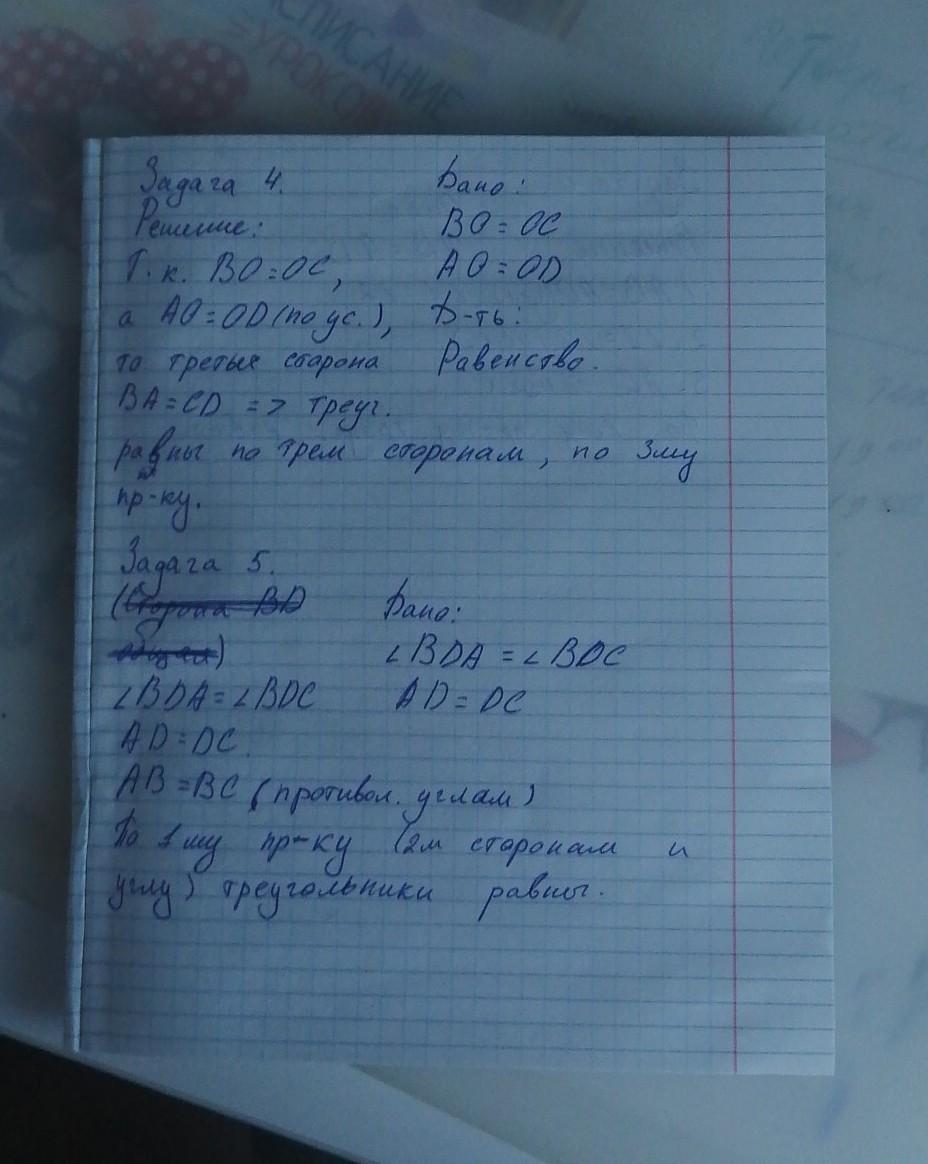 РАСПИСАНИЕ
УРОКОВ
Задача 4.
Решение:
Т.к. BO=OC,
а AO=OD(по ус.),
то третья сторона
BA=CD => треуг.
равны по трем сторонам, по 3му
пр-ку.
Дано:
BO=OC
AO=OD
Д-ть:
Равенство.
Задача 5.
(Сторона BD
общая)
∠BDA=∠BDC
AD=DC.
AB=BC (противол. углам)
По 1му пр-ку (2м сторонам и
углу) треугольники равны.
Дано:
∠BDA=∠BDC
AD=DC